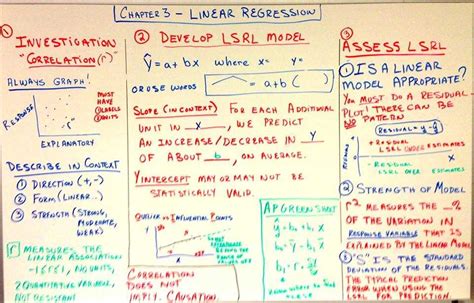 CHAPTER 3 - LINEAR REGRESSION
① INVESTIGATION
"CORRELATION (r)"
ALWAYS GRAPH!
RESPONSE
MUST
HAVE
① LABELS
② UNITS
"r"
EXPLANATORY
DESCRIBE IN CONTEXT
① DIRECTION (+,-)
② FORM (LINEAR...)
③ STRENGTH (STRONG,
MODERATE,
WEAK)
r MEASURES THE
LINEAR ASSOCIATION
-1≤r≤1, NO UNITS,
2 QUANTITATIVE VARIABLES,
NOT RESISTANT
② DEVELOP LSRL MODEL
ŷ = a + bx where x= y=
OR USE WORDS = a + b ( )
SLOPE (IN CONTEXT) FOR EACH ADDITIONAL
UNIT IN x, WE PREDICT
AN INCREASE/DECREASE IN y
OF ABOUT b, ON AVERAGE.
Y INTERCEPT MAY OR MAY NOT BE
STATISTICALLY VALID.
OUTLIER VS INFLUENTIAL POINTS
RANGE OF
VALUES OFF
CORRELATION
DOES NOT
IMPLY CAUSATION.
AP GREEN SHEET
③ ASSESS LSRL
① IS A LINEAR
MODEL APPROPRIATE?
YOU MUST DO A RESIDUAL
PLOT! THERE CAN BE
NO PATTERN
RESIDUAL = y - ŷ
RESIDUALS
+ RESIDUAL
LSRL UNDER ESTIMATES
- RESIDUAL
LSRL OVER ESTIMATES
② STRENGTH OF MODEL
r² MEASURES THE __%
OF THE VARIATION IN
RESPONSE VARIABLE THAT IS
EXPLAINED BY THE LINEAR MODEL
③ "S" IS THE STANDARD
DEVIATION OF THE RESIDUALS
THE TYPICAL PREDICTION
ERROR WHEN USING THE
LSRL FOR PREDICTION.